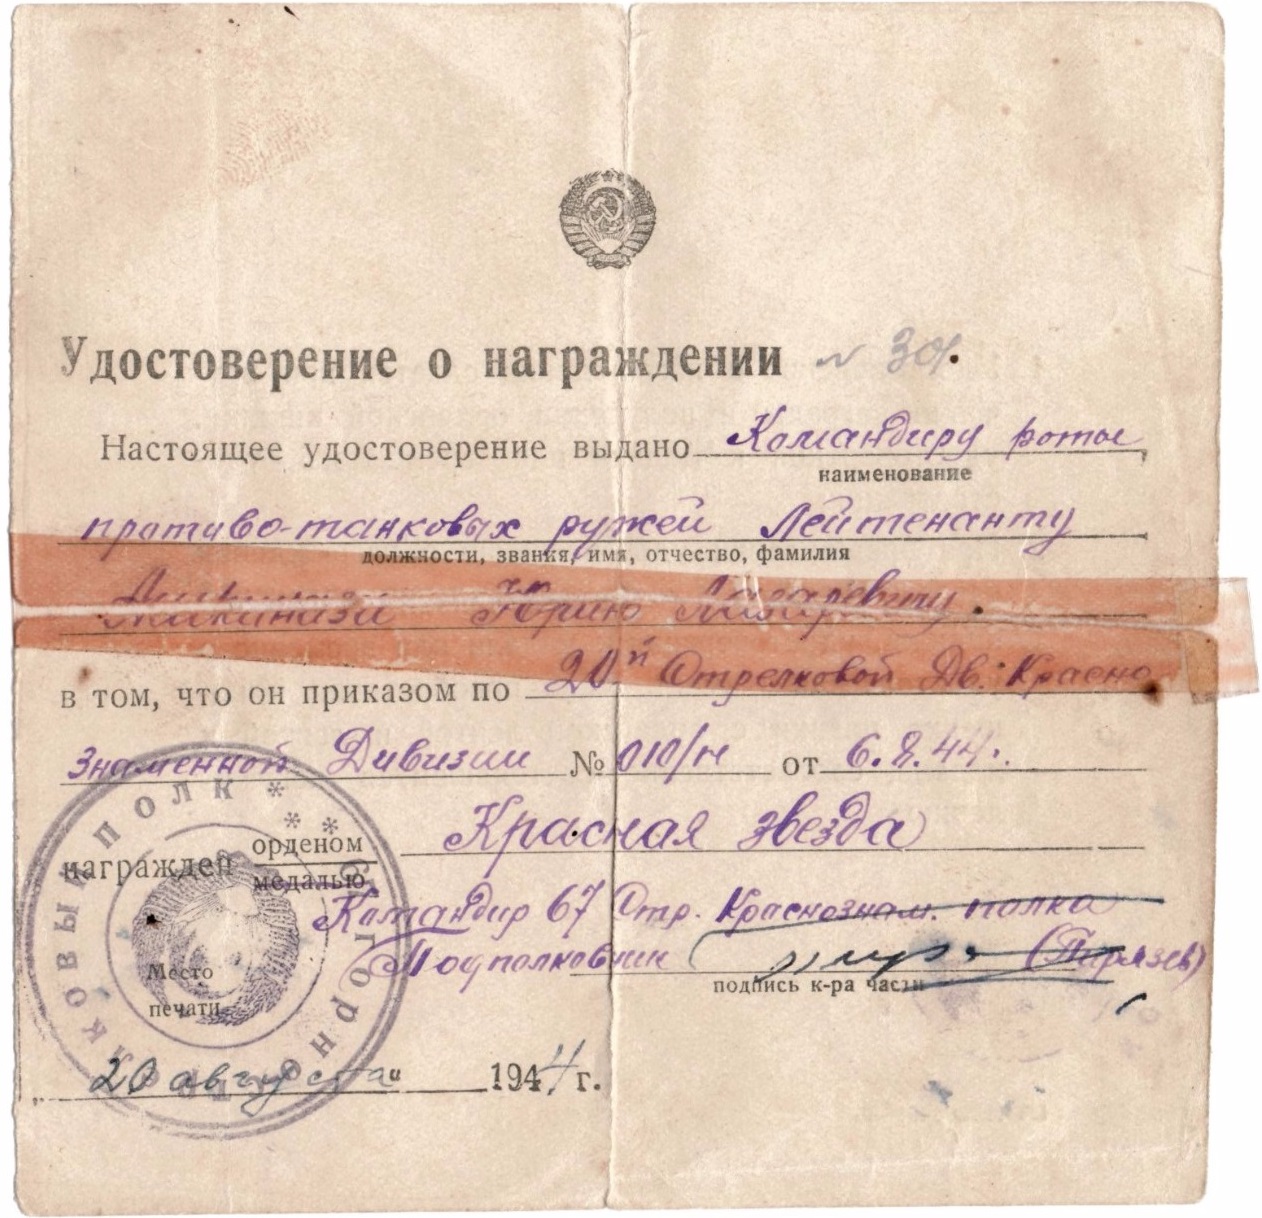 Удостоверение о награждении № 304.
Настоящее удостоверение выдано Командиру роты
наименование
противо-танковых ружей Лейтенанту
должности, звания, имя, отчество, фамилия
Юрию Лазаревичу.
в том, что он приказом по 20й Стрелковой Дв. Красно
знаменной Дивизии № 010/н от 6.8.44г.
награжден орденом Красная звезда
медалью
Командир 67 Стр. Краснознам. полка
Подполковник
подпись к-ра части
Место
печати
„20 августа“ 1944 г.